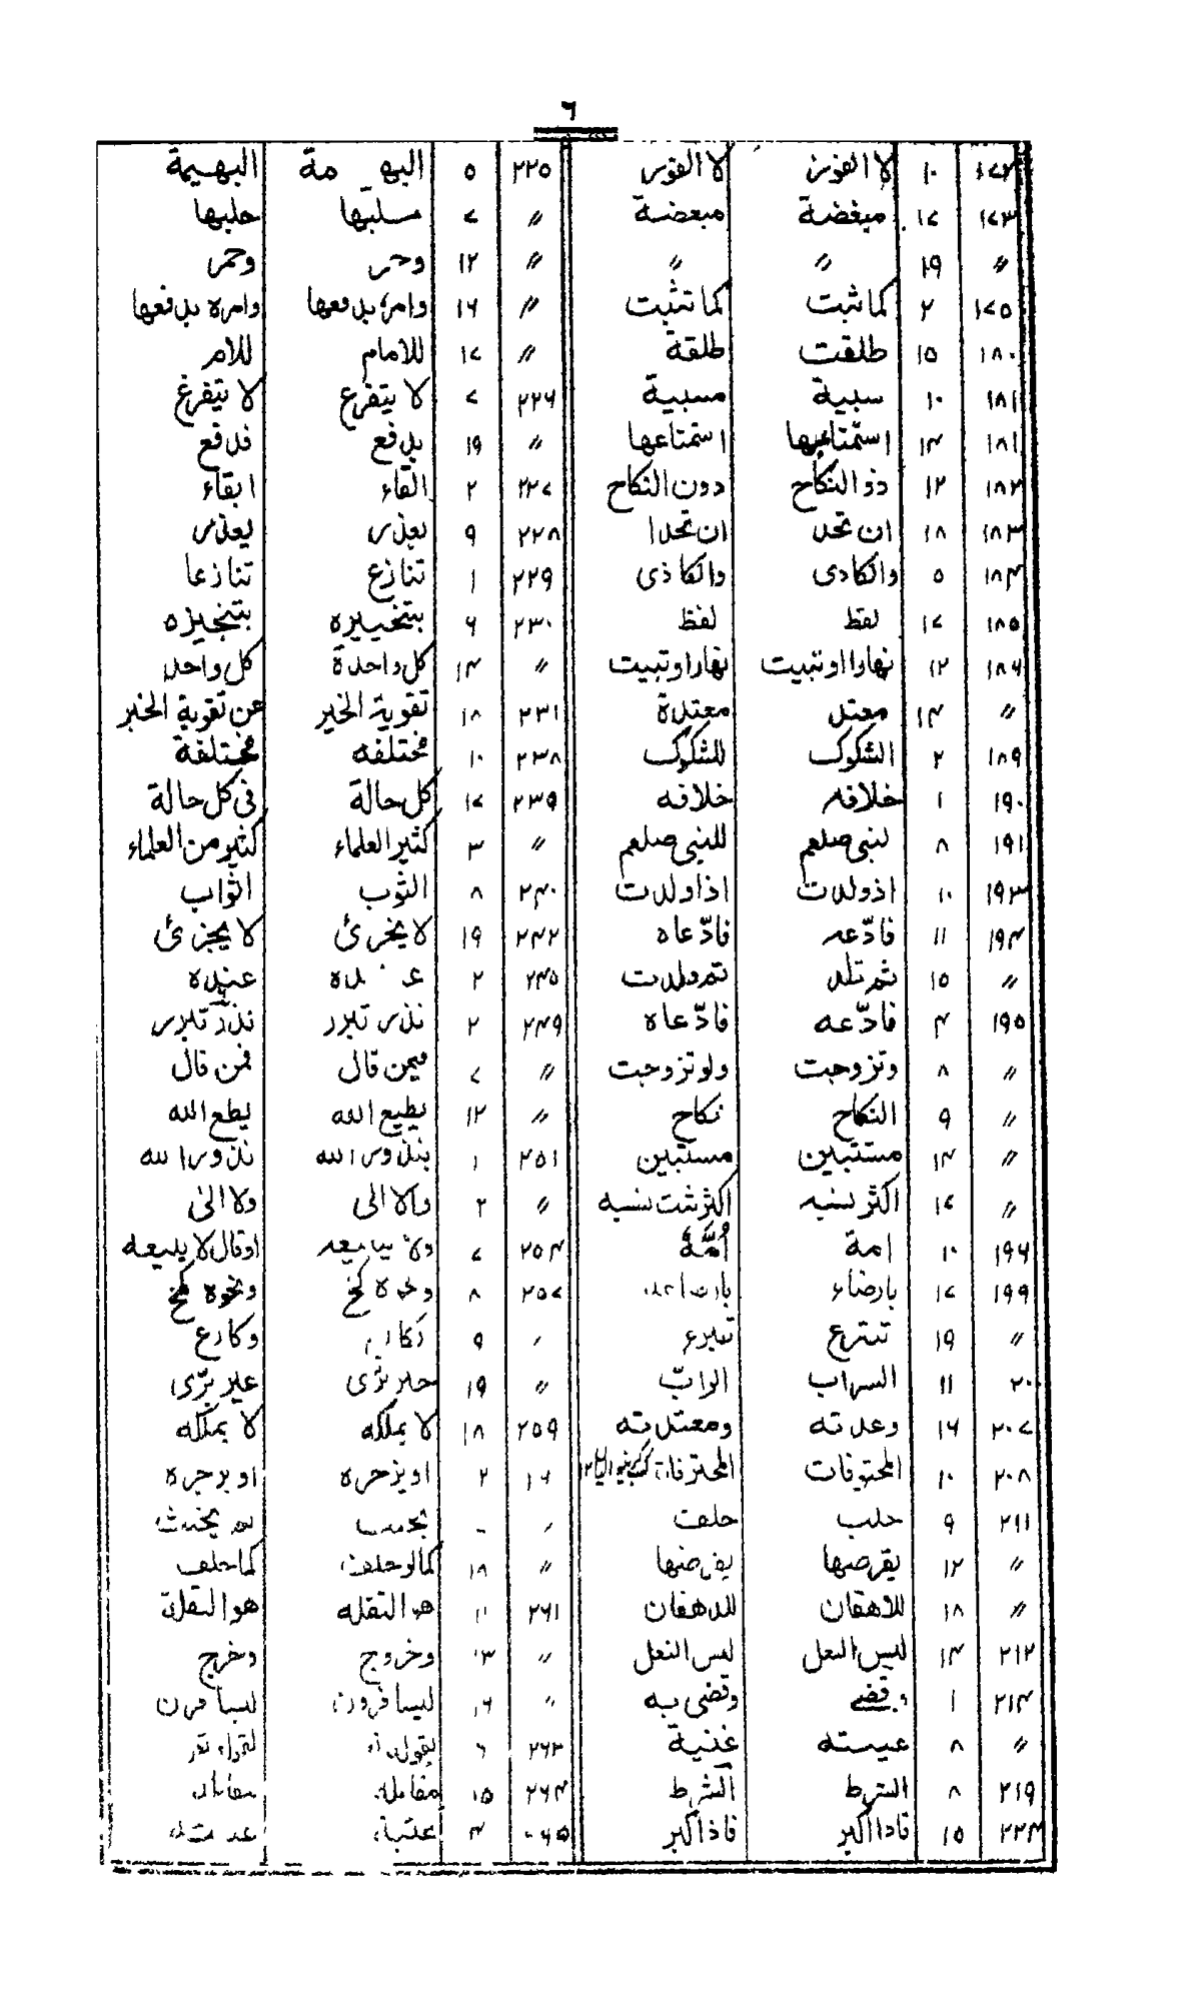 ٦
١٧٢ ١٠ لا الفور لا الفور ٢٢٥ ٥ البهـ مة البهيمة
١٧٣ ١٧ مبغضة مبعضة ״ ٧ مسلبها حلبها
״ ١٩ ״ ״ ״ ١٢ وحر وحمر
١٧٥ ٢ كما ثبت كما تثبت ״ ١٦ وامر بدفعها وامره بدفعها
١٨٠ ١٥ طلقت طلقة ״ ١٧ للامام للام
١٨١ ١٠ سبية مسبية ٢٢٦ ٧ لا يتفرع لا يتفرغ
١٨١ ١٤ استمتاعها استمتاعها ״ ١٩ بدفع فدفع
١٨٢ ١٢ ذو النكاح دون النكاح ٢٢٧ ٢ القاء ابقاء
١٨٣ ١٨ ان تحد ان تحدا ٢٢٨ ٩ يعذر يعذر
١٨٤ ٥ والكادى والكاذى ٢٢٩ ١ تنازع تنازعا
١٨٥ ١٧ لقط لفظ ٢٣٠ ٦ بتخييره بتنجيزه
١٨٦ ١٢ نهارا اوتبيت نهارا وتبيت ״ ١٤ كل واحدة كل واحد
״ ١٤ معتل معتدة ٢٣١ ١٨ تقوية الخير عن تقوية الخبر
١٨٩ ٢ الشكوك للشكوك ٢٣٨ ١٠ مختلفه مختلفة
١٩٠ ١ خلافه خلافه ٢٣٩ ١٧ كل حالة فى كل حالة
١٩١ ٨ لنبى صلعم للنبى صلعم ״ ٣ كثير العلماء كثير من العلماء
١٩٣ ١٠ اذولدت اذا ولدت ٢٤٠ ٨ الثوب الثواب
١٩٤ ١١ فادّعه فادّعاه ٢٤٢ ١٩ لا يخرئ لا يجزئ
״ ١٥ ثم تلد ثم ولدت ٢٤٥ ٢ عـ ده عنده
١٩٥ ٤ فادّعه فادّعاه ٢٤٩ ٢ نذر تبرر نذر تبرر
״ ٨ وتزوجت ولو تزوجت ״ ٧ فيمن قال فمن قال
״ ٩ النكاح نكاح ״ ١٢ يطيع الله يطع الله
״ ١٤ مستتبين مستبين ٢٥١ ١ بنذور الله نذور الله
״ ١٧ اكثر بسنيه اكثر شت بسنيه ״ ٢ والا الى ولا الى
١٩٦ ١٠ امة أُمَّهُ ٢٥٤ ٧ ولا يبايعه اوقال لا يبيعه
١٩٩ ١٧ بارضاء ٢٥٧ ٨ ونحوه كخ ونحوه كخ
״ ١٩ تنترع تبرع ٩ وكارع
٢٠٠ ١١ السراب الرابّ ״ ١٩ عير برّى
٢٠٧ ١٦ وعدته ومعتدته ٢٥٩ ١٨ لا يملكه لا يملكه
٢٠٨ ١٠ المحتوفات المحترفات ٢ اويزحره اويزجره
٢١١ ٩ حلب حلفت لم يحنث
״ ١٢ يقرضها يفرضها ״ ١٨ كما لو حلف كما حلف
״ ١٨ للاهقان للدهقان ٢٦١ هو النقله هو النقلة
٢١٢ ١٤ لبيس النعل لبس النعل ״ وخروج وخرج
٢١٤ ١ وقضى وقضى به ״ ١٦ ليسافرون ليسافرن
״ ٨ عيسته غنية ٢٦٣ ٦
٢١٩ ٨ الشرط الشرط ٢٦٤ ١٥ مقابله
٢٢٣ ١٥ فادا اكبر فاذا كبر ٤ عتبة